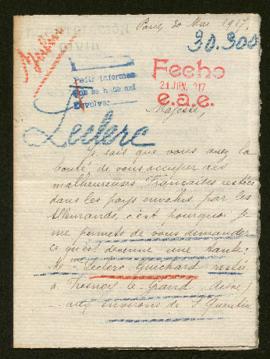 Paris 30 Mai 1917.
30.300
Pedir informes
Fecho
21 JUN. 917
e.a.e.
devolver
Majesté,
Leclerc
Je sais que vous avez la
bonté de vous occuper des
malheureuses Françaises restées
dans les pays envahis par les
Allemands, c'est pourquoi je
me permets de vous demander
ce qu'est devenue une tante
Mme Leclerc Guichard restée
à Fresnoy le Grand (Aisne)
aux environs de St Quentin